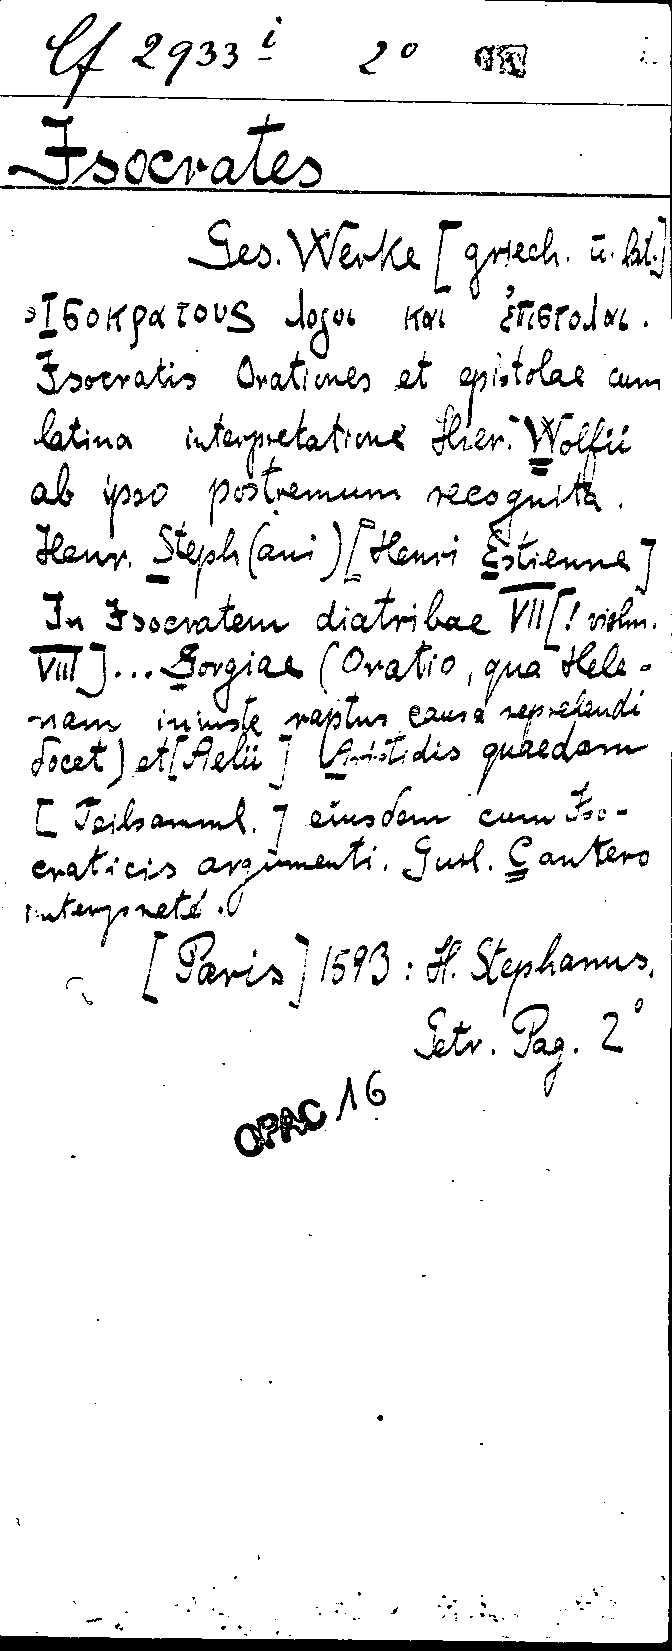 Cf 2933 i 2°
Isocrates
Ges. Werke [griech. u. lat.]
Ἰσοκρατους λογοι και ἐπιστολαι.
Isocratis Orationes et epistolae cum
latina interpretatione Hier. Wolfii
ab ipso postremum recognita.
Henr. Steph(ani) [Henri Estienne]
In Isocratem diatribae VII [! vielm.
VIII] ... Gorgiae (Oratio, qua Hele-
nam iniuste raptus causa reprehendi
docet) et [Aelii] Aristidis quaedam
[Teilsamml.] eiusdem cum Iso-
craticis argumenti. Guil. Cantero
interprete.
[Paris] 1593: H. Stephanus.
Getr. Pag. 2°
OPAC 16